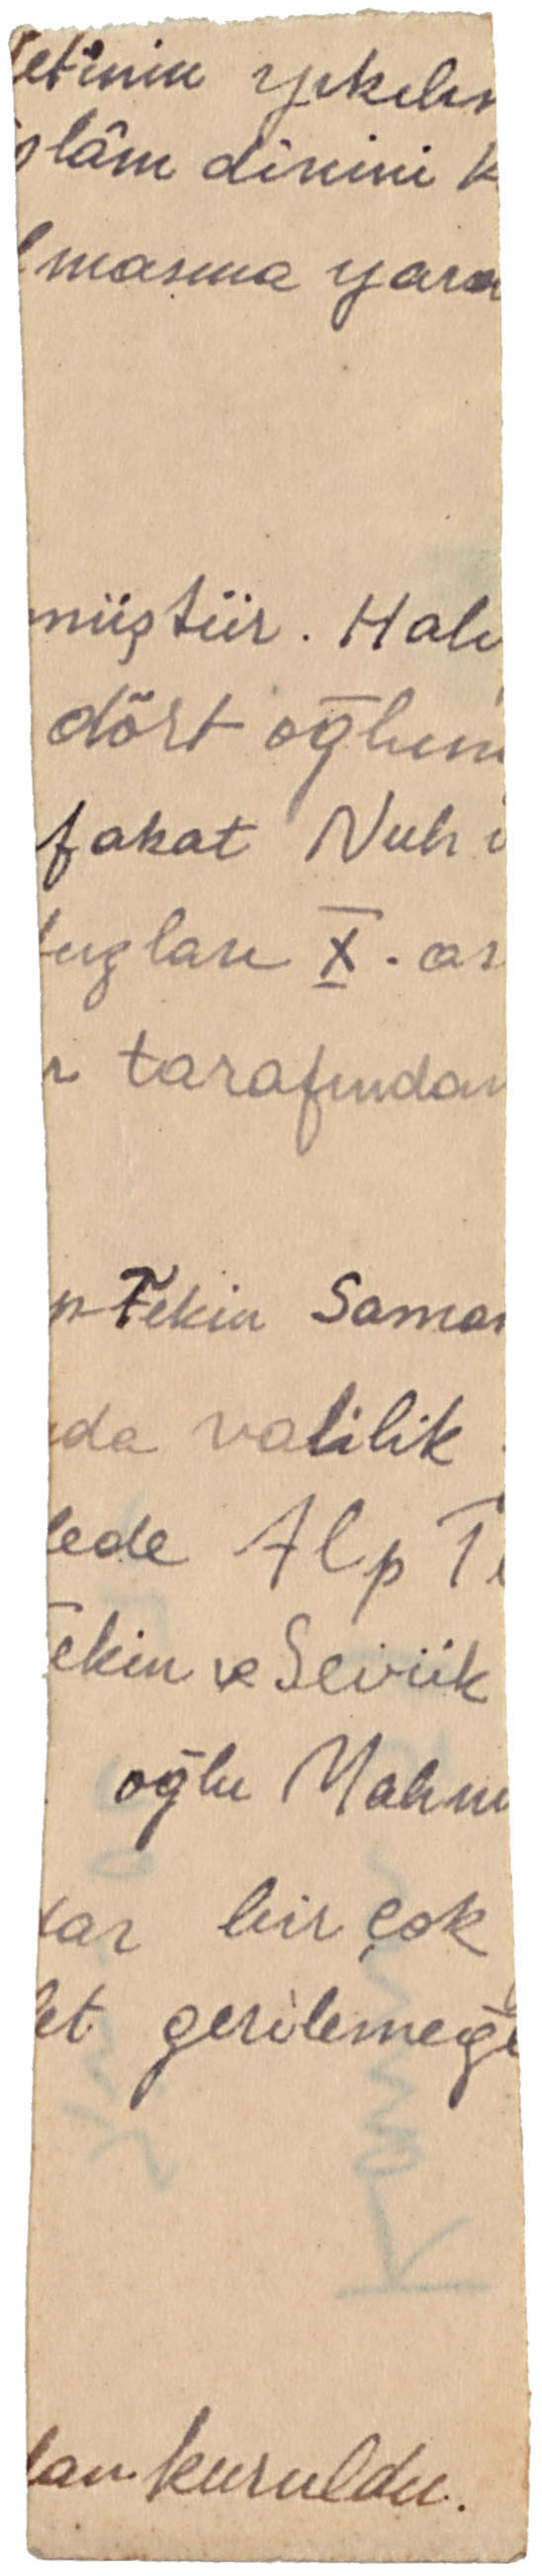 etinin yıkılın
slâm dinini k
lmasına yara
müştür. Hali
dört oğlun
fakat Nuh i
uzları X. as
r tarafından
p Tekin Saman
da valilik
lede Alp Te
ekin ve Sevük
oğlu Mahmu
lar bir çok
let gerilemeğe
lan kuruldu.